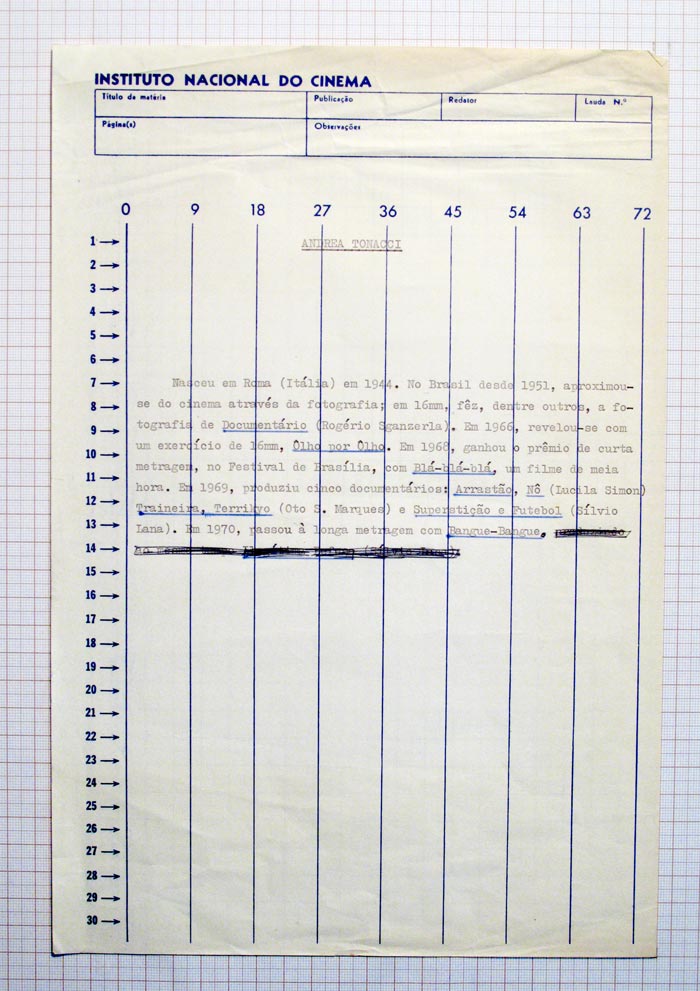 INSTITUTO NACIONAL DO CINEMA
Título da matéria Publicação Redator Lauda N.º
Página(s) Observações
0 9 18 27 36 45 54 63 72
1 ANDREA TONACCI
2
3
4
5
6
7 Nasceu em Roma (Itália) em 1944. No Brasil desde 1951, aproximou-
8 se do cinema através da fotografia; em 16mm, fêz, dentre outros, a fo-
9 tografia de Documentário (Rogério Sganzerla). Em 1966, revelou-se com
10 um exercício de 16mm, Olho por Olho. Em 1968, ganhou o prêmio de curta
11 metragem, no Festival de Brasília, com Blá-blá-blá, um filme de meia
12 hora. Em 1969, produziu cinco documentários: Arrastão, Nô (Lucila Simon)
Traineira, Terrikyo (Oto S. Marques) e Superstição e Futebol (Sílvio
13 Lana). Em 1970, passou à longa metragem com Bangue-Bangue.
14
15
16
17
18
19
20
21
22
23
24
25
26
27
28
29
30